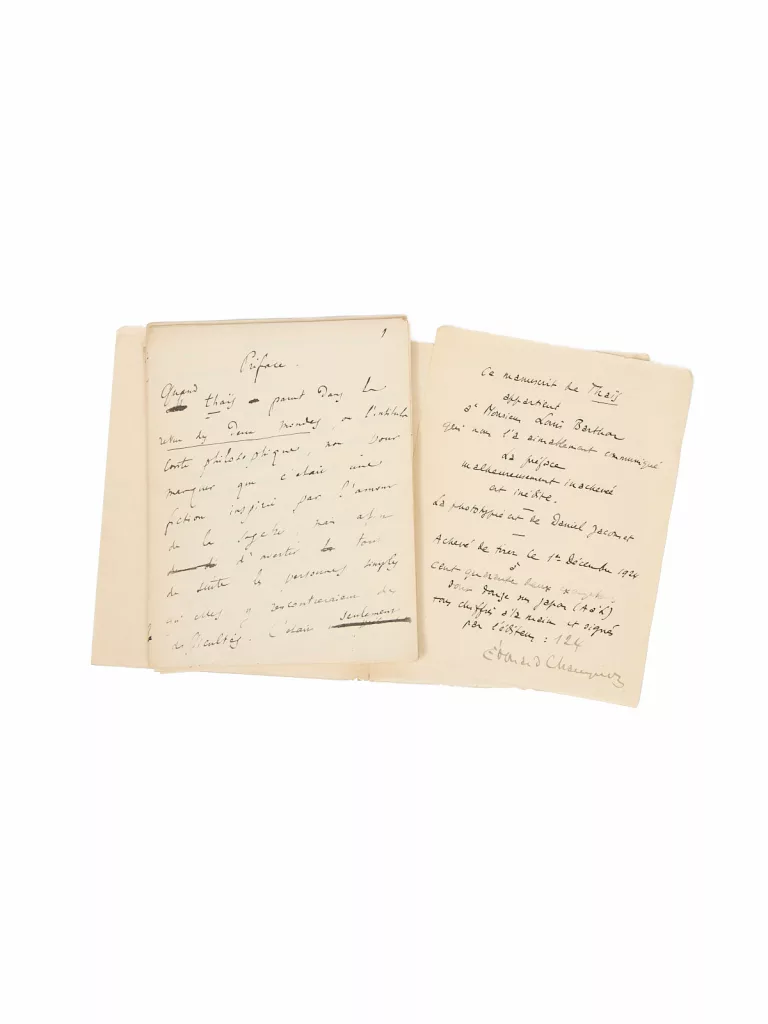 1
Préface.
Quand
Thaïs parut dans la
revue des Deux Mondes, je l'intitulai
Conte philosophique, non pour
marquer que c'était une
fiction inspirée par l'amour
de la sagesse, mais afin
d'avertir tout
de suite les personnes simples
qu'elles y rencontreraient des
difficultés. C'était seulement
Ce manuscrit de Thaïs
appartient
à Monsieur Louis Barthou
qui nous l'a aimablement communiqué
La préface
malheureusement inachevée
est inédite.
La phototypie est de Daniel Jacomet
Achevé de tirer le 1er Décembre 1924
à
cent quarante deux exempl.
dont douze sur japon (A à L)
tous chiffrés à la main et signés
par l'éditeur : 124
Edouard Champion